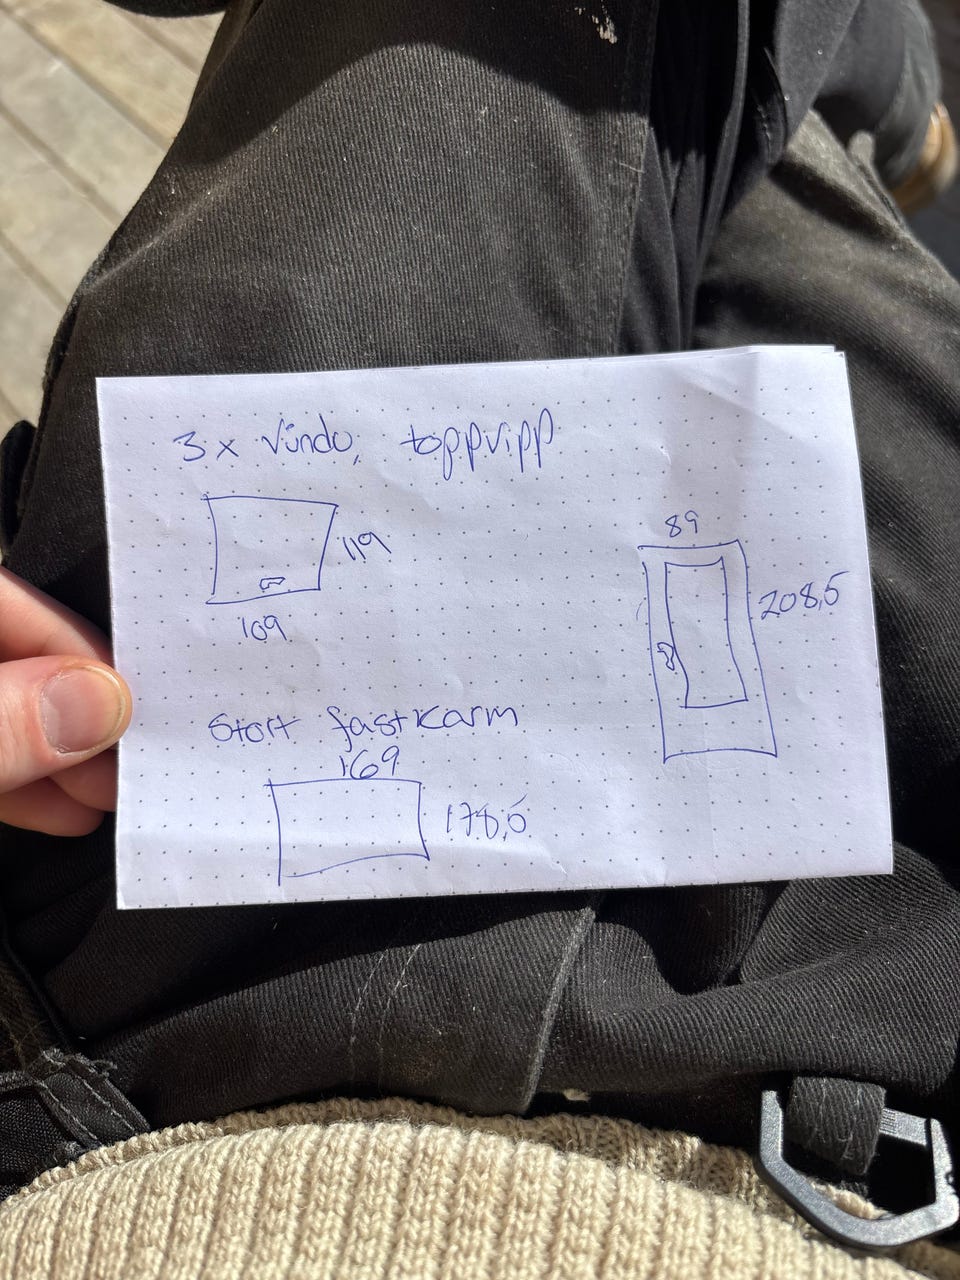 3 x Vindu, toppvipp
119
109
89
208,5
Stort fastkarm
169
178,5